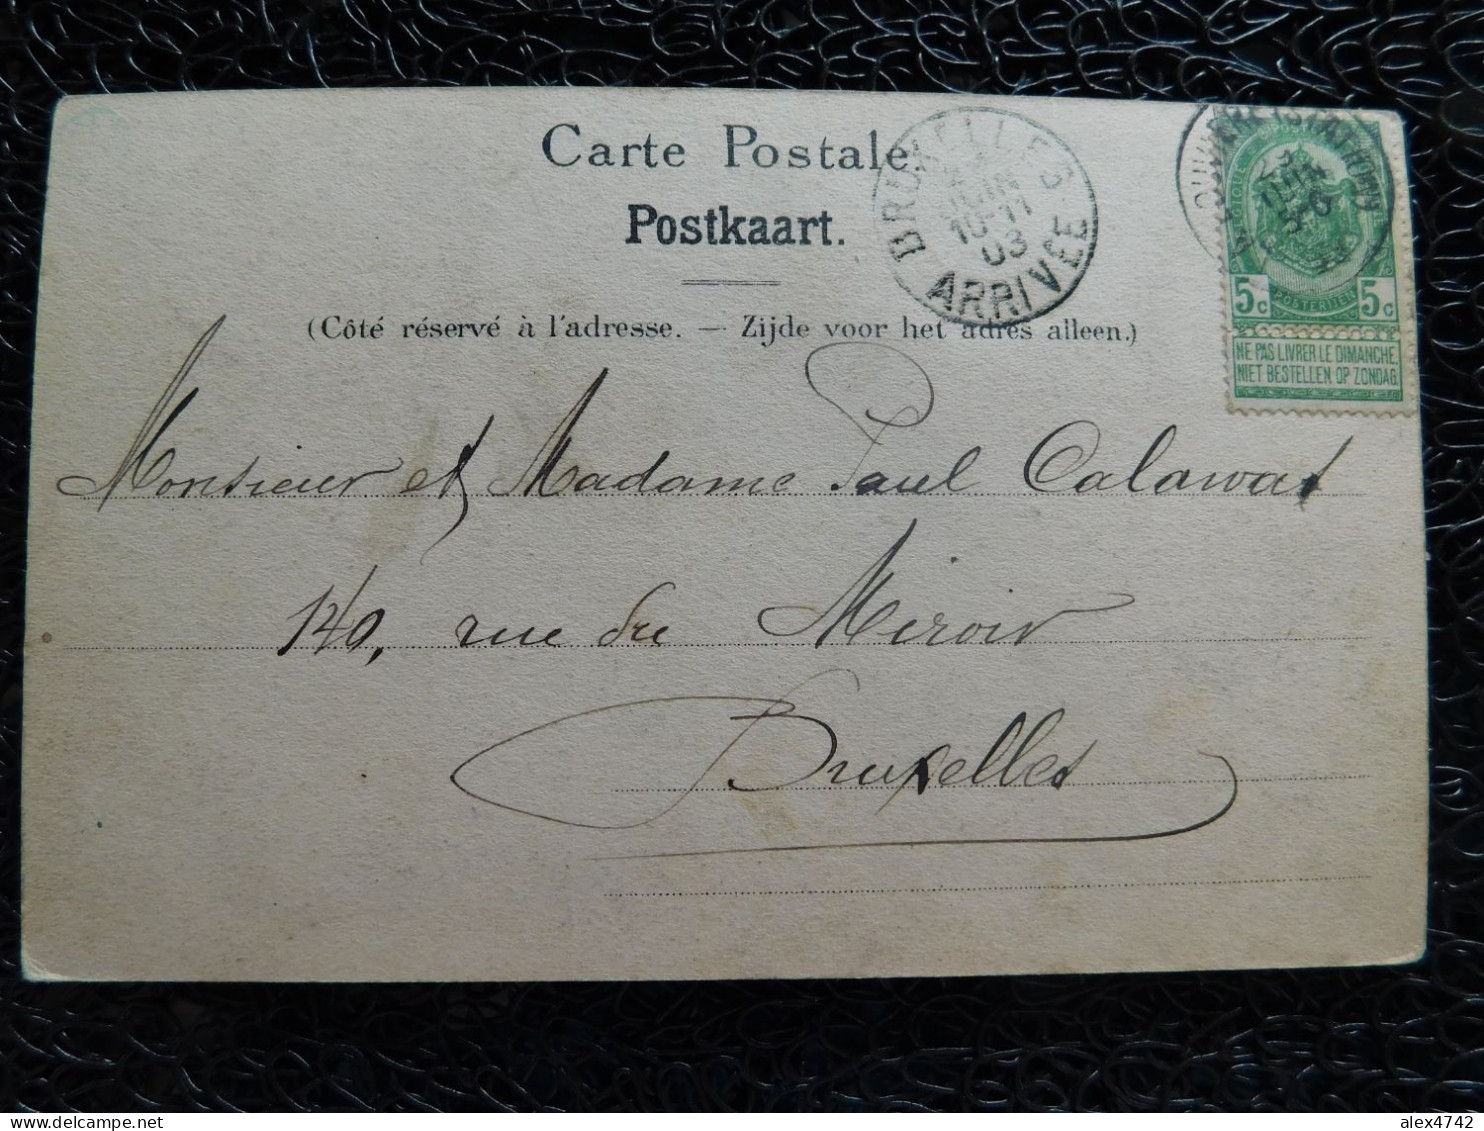 Carte Postale
Postkaart.
(Côté réservé à l'adresse. — Zijde voor het adres alleen.)
BRUXELLES
JUIN
10-11
03
ARRIVEE
23
JUIN
5c 5c
POSTERIJEN
NE PAS LIVRER LE DIMANCHE.
NIET BESTELLEN OP ZONDAG.
Monsieur et Madame Paul Calawat
140, rue du Miroir
Bruxelles
alex4742